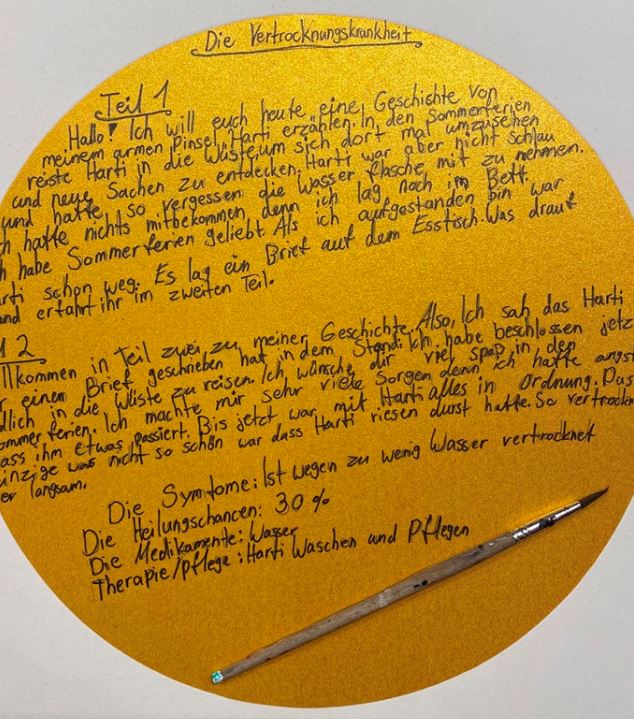 Die Vertrocknungskrankheit
Teil 1
Hallo! Ich will euch heute eine Geschichte von
meinem armen Pinsel Harti erzählen. In den Sommerferien
reiste Harti in die Wüste, um sich dort mal umzusehen
und neue Sachen zu entdecken. Harti war aber nicht schlau
und hatte so vergessen die Wasser flasche mit zu nehmen.
ch hatte nichts mitbekommen, denn ich lag noch im Bett.
h habe Sommerferien geliebt. Als ich aufgestanden bin war
arti schon weg. Es lag ein Brief auf dem Esstisch. Was drauf
and erfahrt ihr im zweiten Teil.
l 2
llkommen in Teil zwei zu meiner Geschichte. Also, Ich sah das Harti
r einen Brief geschrieben hat in dem Stand: Ich habe beschlossen jetz
dlich in die Wüste zu reisen. Ich wünsche dir viel spaß in den
ommerferien. Ich machte mir sehr viele Sorgen denn ich hatte angst
ass ihm etwas passiert. Bis jetzt war mit Harti alles in Ordnung. Das
inzige was nicht so schön war dass Harti riesen durst hatte. So vertrockn
er langsam.
Die Symtome: Ist wegen zu wenig Wasser vertrocknet
Die Heilungschancen: 30 %
Die Medikamente: Wasser
Therapie/pflege: Harti Waschen und Pflegen